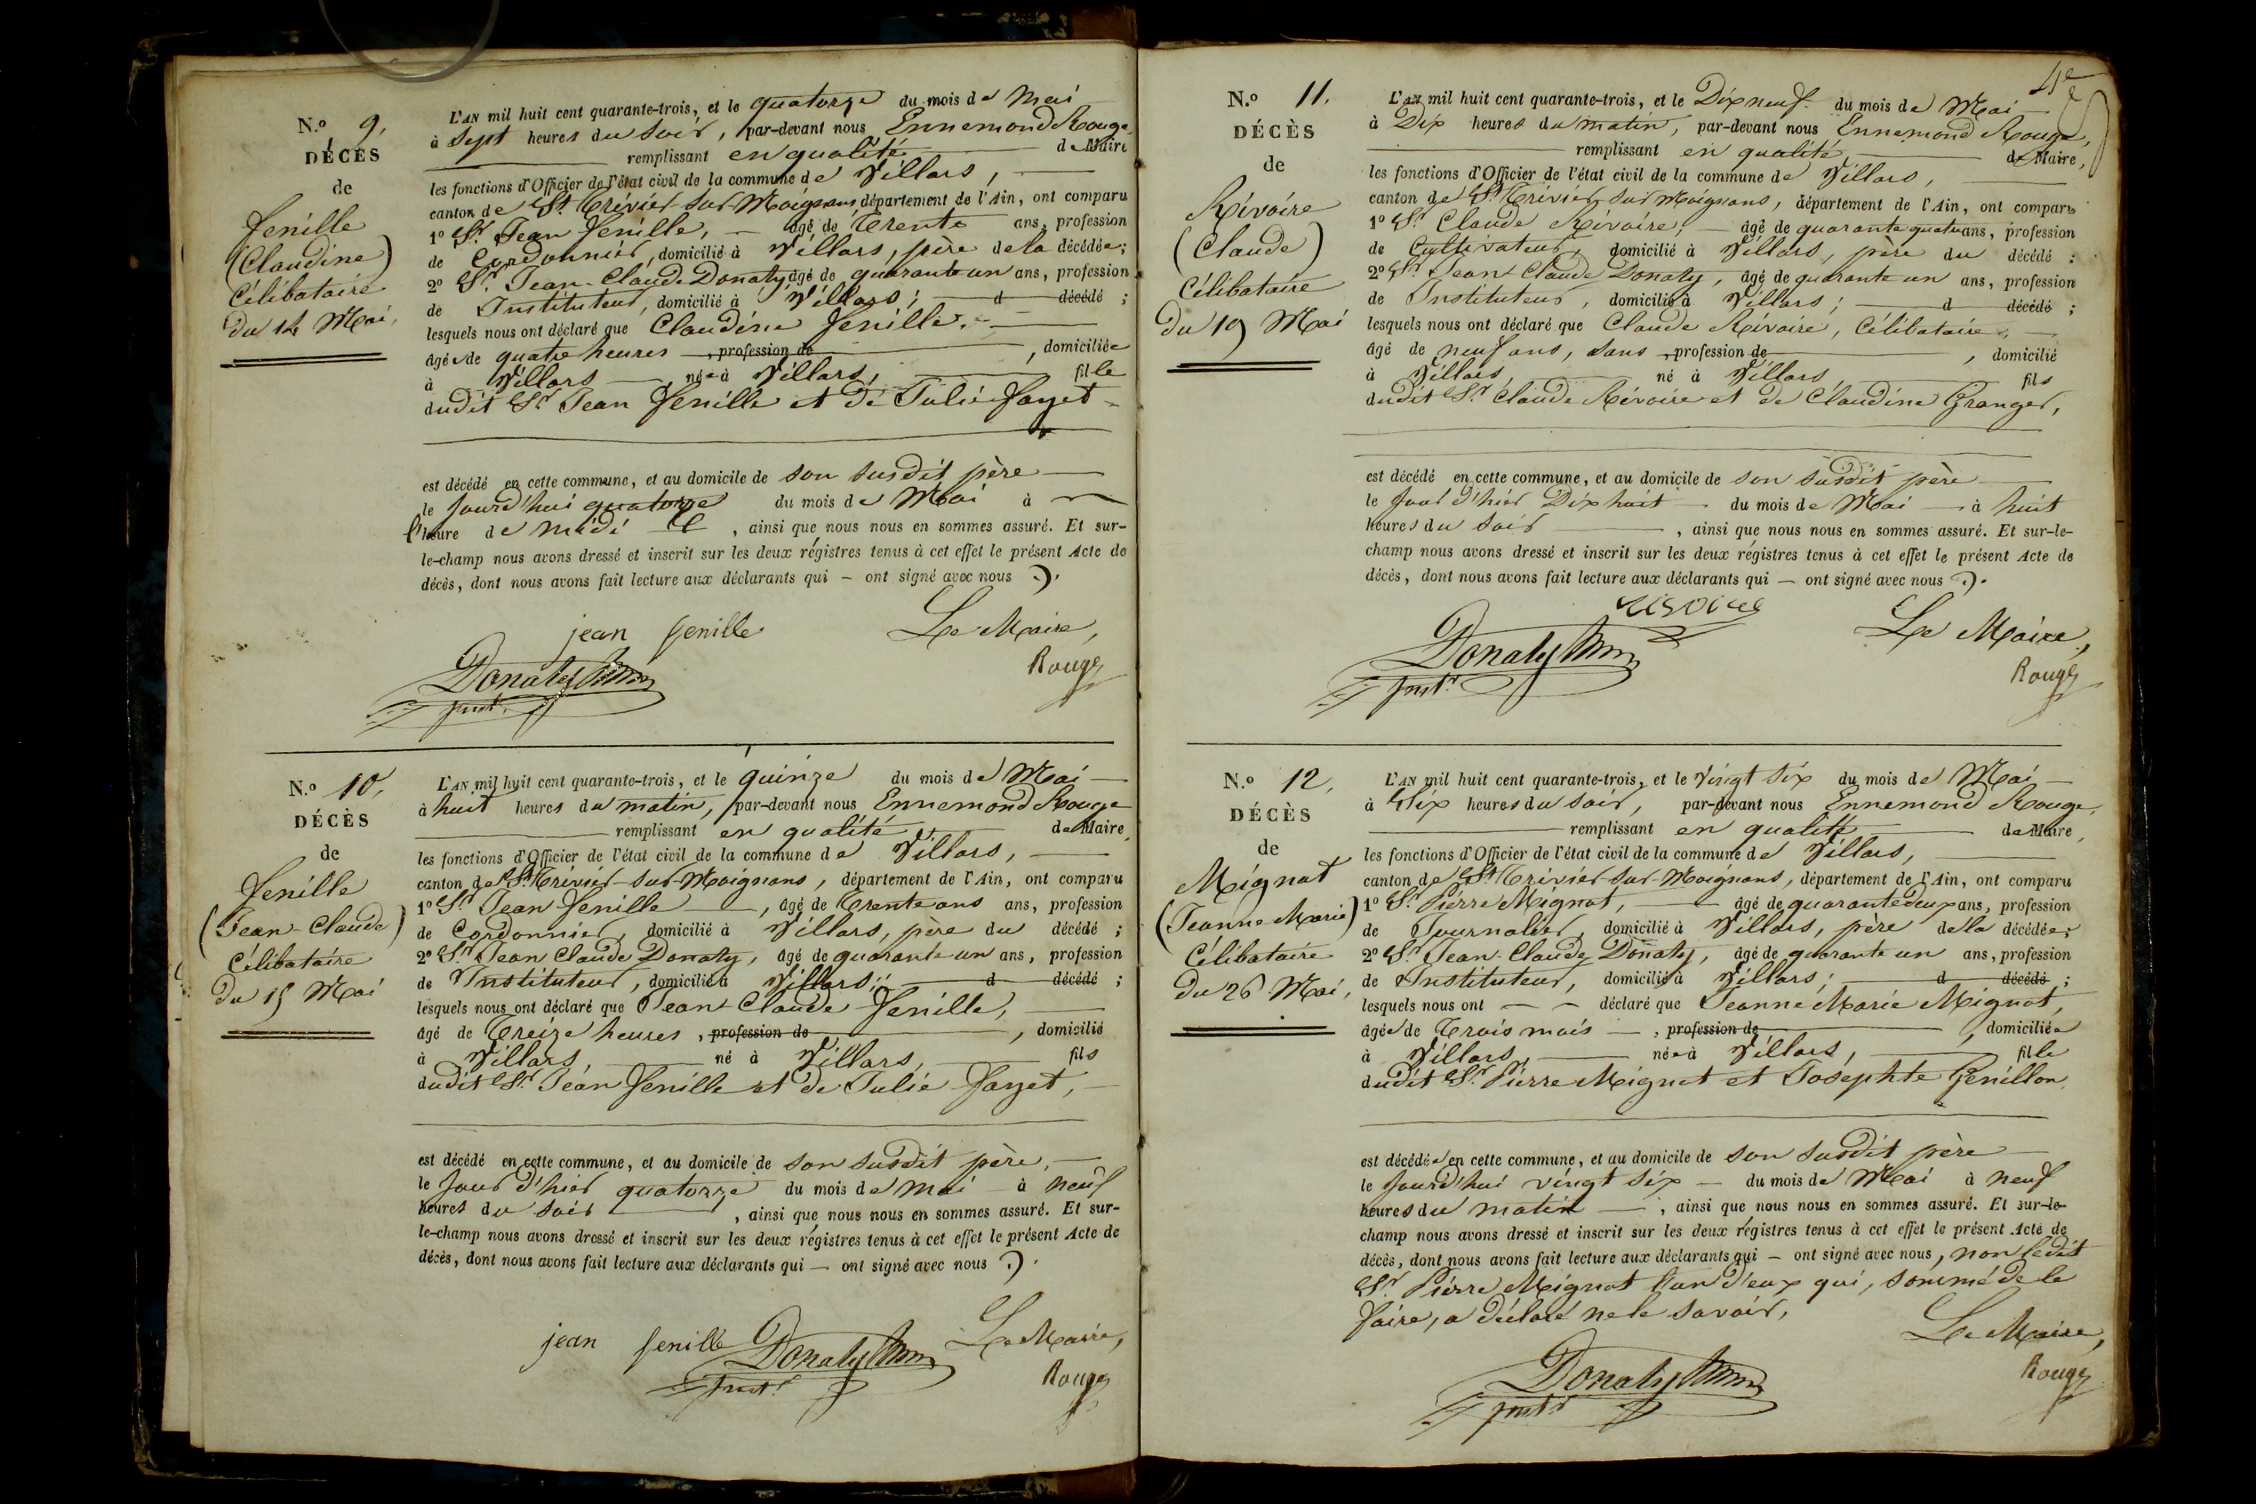 N.º 9.
DÉCÈS
de
Fenille
(Claudine)
Célibataire
du 14 Mai.
L'AN mil huit cent quarante-trois, et le quatorze du mois de Mai
à sept heures du soir, par-devant nous Ennemond Rouge,
remplissant en qualité de Maire
les fonctions d'Officier de l'état civil de la commune de Villars,
canton de St. Trivier-sur-Moignans département de l'Ain, ont comparu
1º Sr. Jean Fenille, — âgé de Trente ans, profession
de Cordonnier, domicilié à Villars, père de la décédée ;
2º Sr. Jean-Claude Donaty, âgé de quarante un ans, profession
de Instituteur, domicilié à Villars ; d décédé ;
lesquels nous ont déclaré que Claudine Fenille,
âgée de quatre heures , profession de , domiciliée
à Villars née à Villars, fille
dudit Sr. Jean Fenille et de Julie Fayet
est décédé en cette commune, et au domicile de son susdit père
le Jourd'hui quatorze du mois de Mai à
l'heure de midi , ainsi que nous nous en sommes assuré. Et sur-
le-champ nous avons dressé et inscrit sur les deux régistres tenus à cet effet le présent Acte de
décès, dont nous avons fait lecture aux déclarants qui — ont signé avec nous
jean fenille Le Maire,
Donaty Rouge
Instr.
N.º 10.
DÉCÈS
de
Fenille
(Jean-Claude)
Célibataire
du 15 Mai
L'AN mil huit cent quarante-trois, et le quinze du mois de Mai —
à huit heures du matin, par-devant nous Ennemond Rouge
remplissant en qualité de Maire,
les fonctions d'Officier de l'état civil de la commune de Villars,
canton de St. Trivier-sur-Moignans, département de l'Ain, ont comparu
1º Sr. Jean Fenille , âgé de Trente ans ans, profession
de Cordonnier, domicilié à Villars, père du décédé ;
2º Sr. Jean Claude Donaty, âgé de quarante un ans, profession
de Instituteur, domicilié à Villars ; d décédé ;
lesquels nous ont déclaré que Jean Claude Fenille,
âgé de Treize heures , profession de , domicilié
à Villars, né à Villars, fils
dudit Sr. Jean Fenille et de Julie Fayet,
est décédé en cette commune, et au domicile de son susdit père,
le Jour d'hier quatorze du mois de mai à neuf
heures du soir , ainsi que nous nous en sommes assuré. Et sur-
le-champ nous avons dressé et inscrit sur les deux régistres tenus à cet effet le présent Acte de
décès, dont nous avons fait lecture aux déclarants qui — ont signé avec nous
jean fenille Donaty Le Maire,
Instr. Rouge
4e
N.º 11.
DÉCÈS
de
Rivoire
(Claude)
Célibataire
du 19 Mai
L'AN mil huit cent quarante-trois, et le Dix neuf du mois de Mai
à Dix heures du matin, par-devant nous Ennemond Rouge,
remplissant en qualité de Maire,
les fonctions d'Officier de l'état civil de la commune de Villars,
canton de St. Trivier sur Moignans, département de l'Ain, ont comparu
1º Sr. Claude Rivoire, — âgé de quarante quatre ans, profession
de Cultivateur, domicilié à Villars, père du décédé ;
2º Sr. Jean Claude Donaty, âgé de quarante un ans, profession
de Instituteur, domicilié à Villars ; d décédé ;
lesquels nous ont déclaré que Claude Rivoire, Célibataire,
âgé de neuf ans, sans profession de , domicilié
à Villars né à Villars fils
dudit Sr. Claude Rivoire et de Claudine Granger,
est décédé en cette commune, et au domicile de son susdit père
le Jour d'hier Dix huit du mois de Mai — à huit
heures du soir , ainsi que nous nous en sommes assuré. Et sur-le-
champ nous avons dressé et inscrit sur les deux régistres tenus à cet effet le présent Acte de
décès, dont nous avons fait lecture aux déclarants qui — ont signé avec nous
rivoire Le Maire,
Donaty Rouge
Instr.
N.º 12.
DÉCÈS
de
Mignat
(Jeanne Marie)
Célibataire
du 26 Mai,
L'AN mil huit cent quarante-trois, et le vingt six du mois de Mai —
à Six heures du soir, par-devant nous Ennemond Rouge,
remplissant en qualité de Maire,
les fonctions d'Officier de l'état civil de la commune de Villars,
canton de St. Trivier-sur-Moignans, département de l'Ain, ont comparu
1º Sr. Pierre Mignat, — âgé de quarante deux ans, profession
de Journalier, domicilié à Villars, père de la décédée ;
2º Sr. Jean-Claude Donaty, âgé de quarante un ans, profession
de Instituteur, domicilié à Villars ; d décédé ;
lesquels nous ont — — déclaré que Jeanne Marie Mignat,
âgée de Trois mois , profession de , domiciliée
à Villars, née à Villars, fille
dudit Sr. Pierre Mignat et Josephte Genillon
est décédée en cette commune, et au domicile de son susdit père
le Jourd'hui vingt six — du mois de Mai à neuf
heures du matin , ainsi que nous nous en sommes assuré. Et sur-le-
champ nous avons dressé et inscrit sur les deux régistres tenus à cet effet le présent Acte de
décès, dont nous avons fait lecture aux déclarants qui — ont signé avec nous, non ledit
Sr. Pierre Mignat l'un d'eux qui, sommé de le
faire, a déclaré ne le savoir,
Le Maire,
Donaty Rouge
Instr.